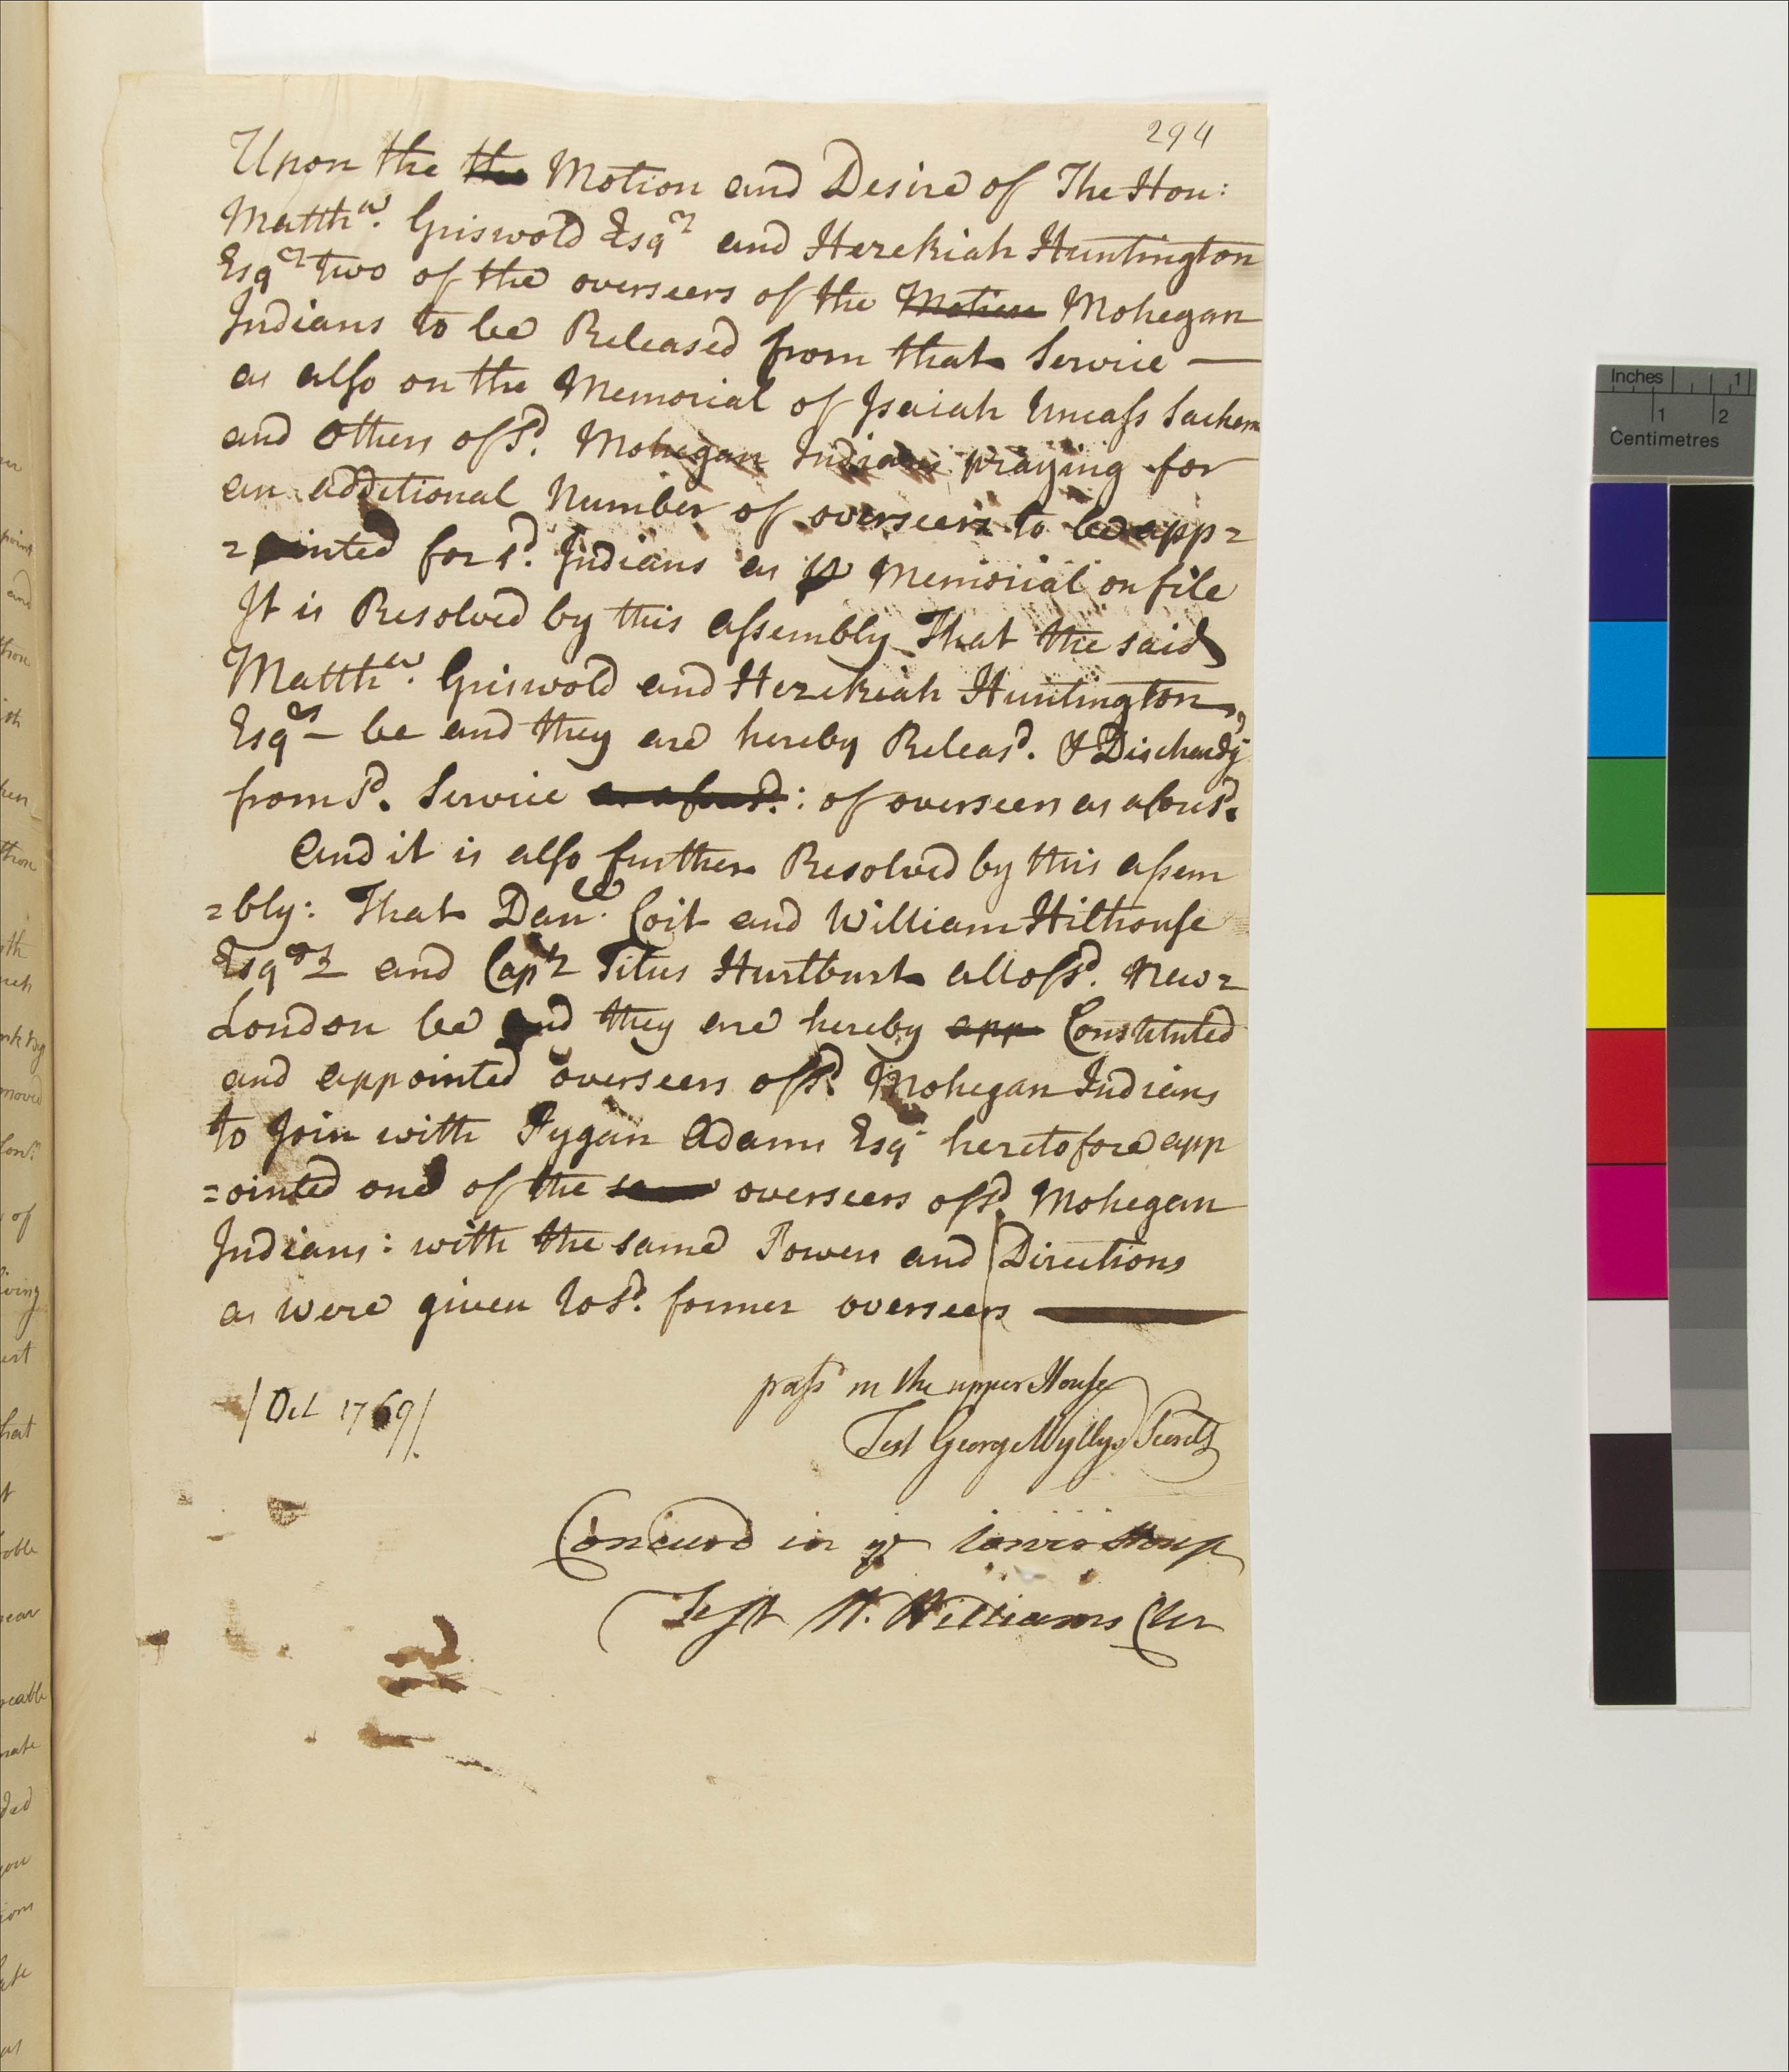 294
Upon the the Motion and Desire of The Hon:
Matthw. Griswold Esqr and Hezekiah Huntington
Esqr two of the overseers of the Motion Mohegan
Indians to be Released from that Service —
as also on the Memorial of Isaiah Uncass Sachem
and Others of sd. Mohegan Indians praying for
an additional Number of overseers to be app=
=pointed for sd. Indians as pr Memorial on file
It is Resolved by this assembly That the said
Matthw. Griswold and Hezekiah Huntington,
Esqrs — be and they are hereby Releasd. & Dischardg
from sd. Service as aforesd.: of overseers as afors.d
And it is also further Resolved by this assem
=bly: That Danll. Coit and William Hilhouse
Esqrs and Capt Titus Hurlburt all of sd. New=
London be and they are hereby app Constituted
and appointed overseers of sd. Mohegan Indians
to Join with Pygan Adams Esqr heretofore app
=ointed one of the same overseers of sd. Mohegan
Indians: with the same Powers and Directions
as were given to sd. former overseers —
/Oct 1769/.
passd in the upper House
Test George Wyllys Secrety
Concurd in ye lower House
Test W. Williams Cler
Inches 1
1 2
Centimetres